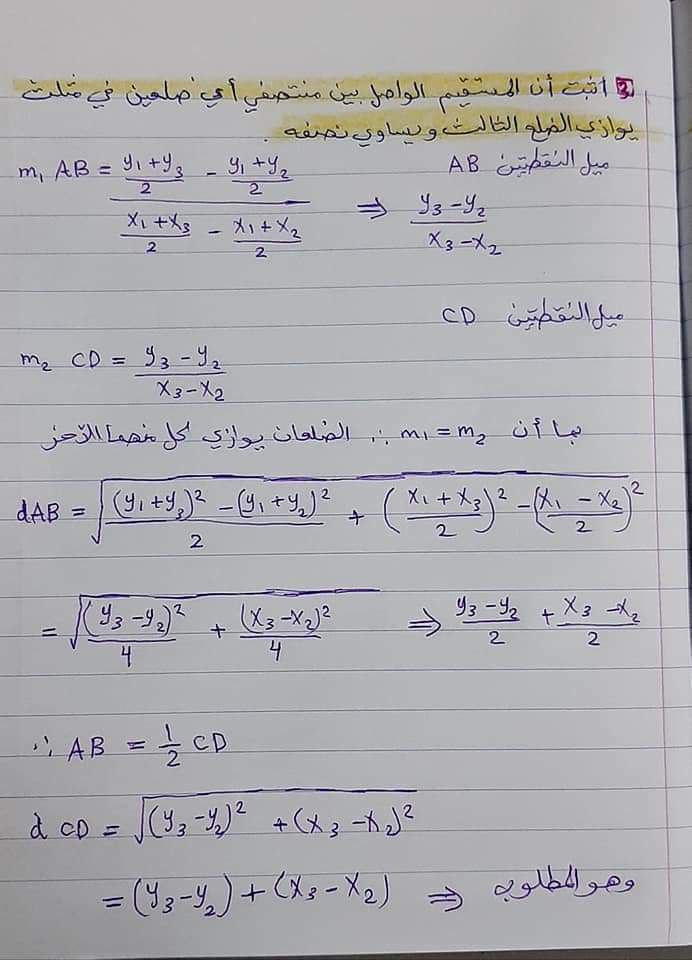 3] اثبت أن المستقيم الواصل بين منتصفي أي ضلعين في مثلث
يوازي الضلع الثالث ويساوي نصفه .
ميل النقطتين AB
m₁ AB = ((y₁+y₃)/2 - (y₁+y₂)/2) / ((x₁+x₃)/2 - (x₁+x₂)/2) ⇒ (y₃-y₂)/(x₃-x₂)
ميل النقطتين CD
m₂ CD = (y₃-y₂)/(x₃-x₂)
بما أن m₁=m₂ ∴ الضلعان يوازي كل منهما الآخر
dAB = √(((y₁+y₃)²-(y₁+y₂)²)/2 + ((x₁+x₃)/2)²-((x₁-x₂)/2)²)
= √((y₃-y₂)²/4 + (x₃-x₂)²/4) ⇒ (y₃-y₂)/2 + (x₃-x₂)/2
∴ AB = 1/2 CD
d CD = √((y₃-y₂)² + (x₃-x₂)²)
= (y₃-y₂) + (x₃-x₂) ⇒ وهو المطلوب